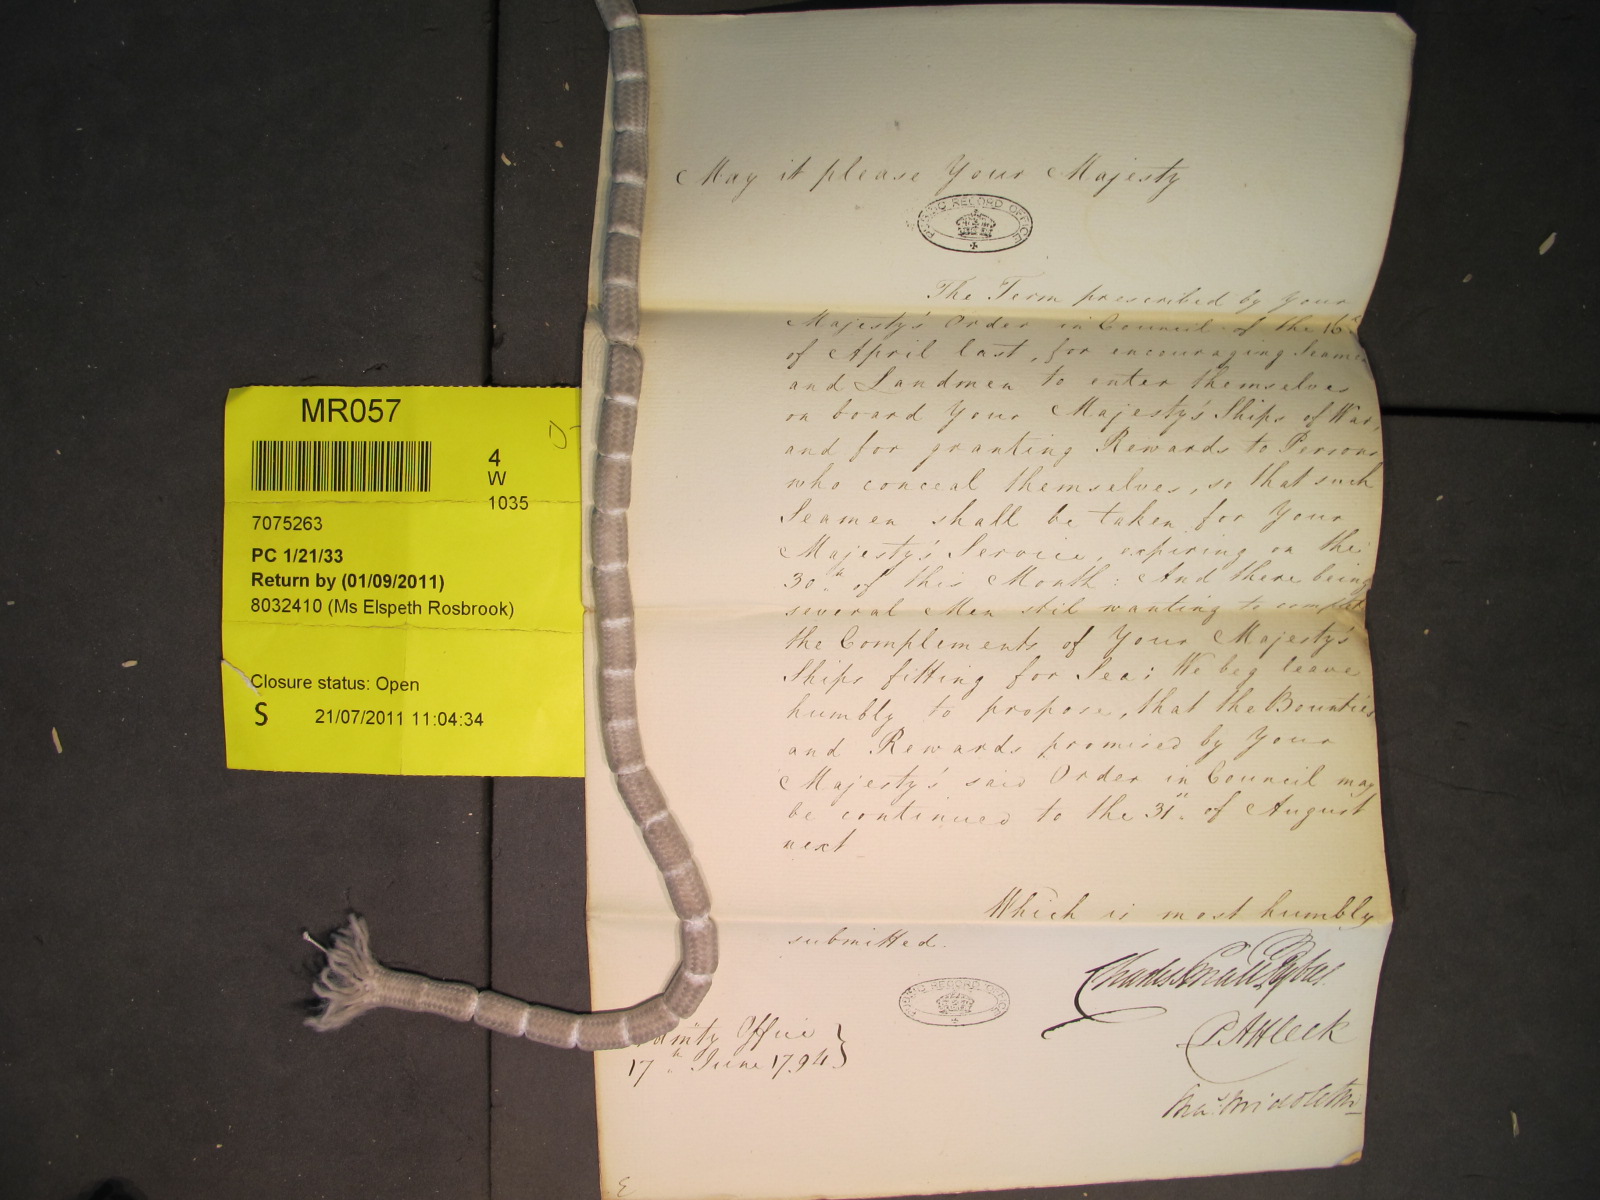 MR057
4
W
1035
7075263
PC 1/21/33
Return by (01/09/2011)
8032410 (Ms Elspeth Rosbrook)
Closure status: Open
S 21/07/2011 11:04:34
May it please Your Majesty
PUBLIC RECORD OFFICE
The Term prescribed by Your
Majesty's Order in Council of the 16th
of April last, for encouraging Seamen
and Landmen to enter themselves
on board Your Majesty's Ships of War,
and for granting Rewards to Persons
who conceal themselves, so that such
Seamen shall be taken for Your
Majesty's Service, expiring on the
30th of this Month: And there being
several Men stil wanting to complete
the Complements of Your Majesty's
Ships fitting for Sea; We beg leave
humbly to propose, that the Bounties
and Rewards promised by Your
Majesty's said Order in Council may
be continued to the 31st of August
next
Which is most humbly
submitted.
Charles Small Pybus.
PUBLIC RECORD OFFICE
P Affleck
Chas Middleton
Office
17th June 1794